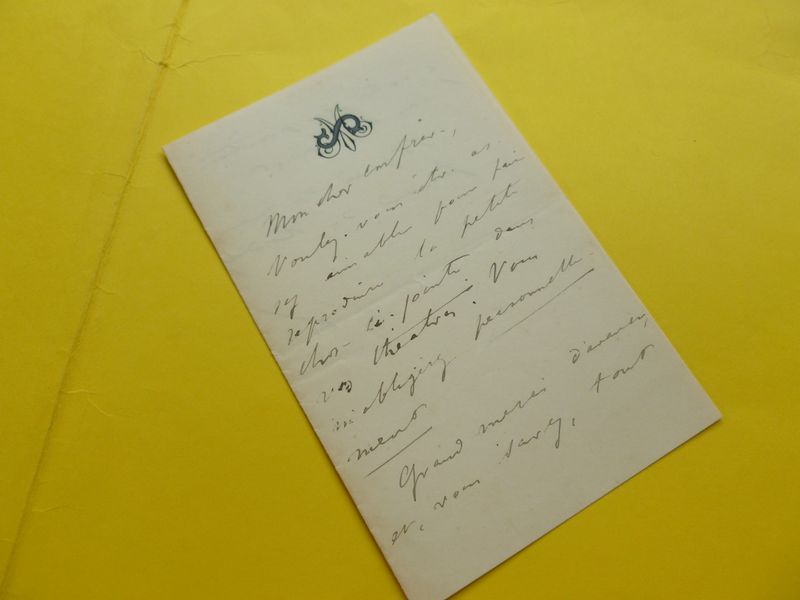 Mon cher confrère,
Voulez-vous être as
sez aimable pour faire
reproduire la petite
chose ci-jointe dans
vos théâtres. Vous
m'obligerez personnelle-
ment
Grand merci d'avance,
et, vous savez, tout